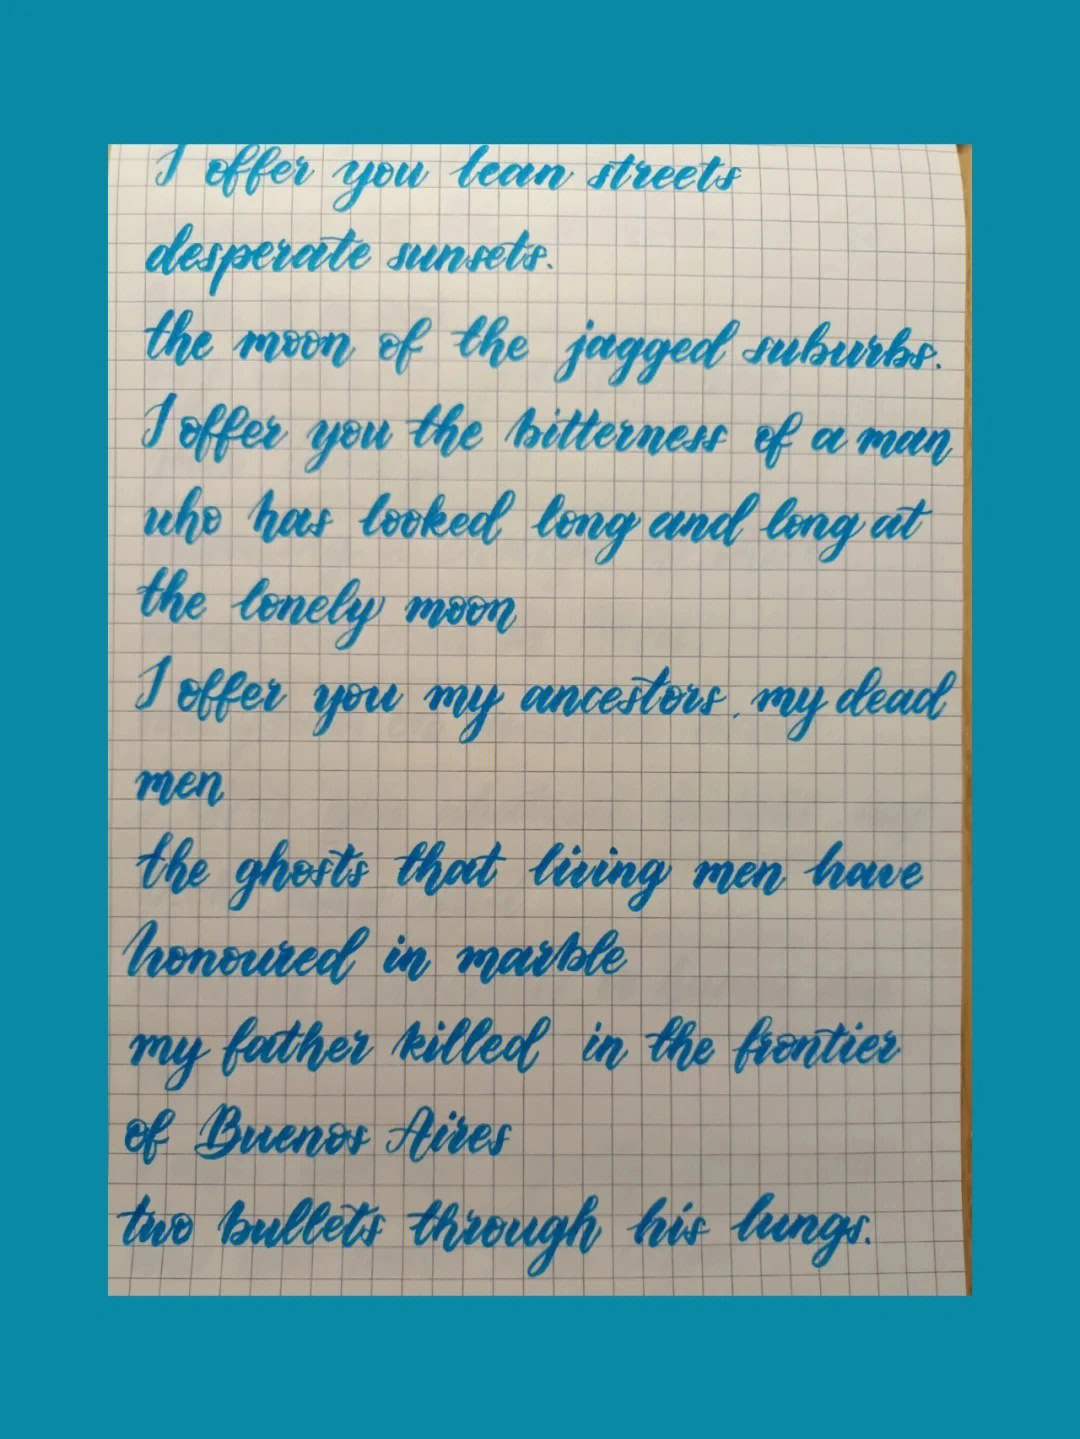 I offer you lean streets
desperate sunsets.
the moon of the jagged suburbs.
I offer you the bitterness of a man
who has looked long and long at
the lonely moon
I offer you my ancestors, my dead
men
the ghosts that living men have
honoured in marble
my father killed in the frontier
of Buenos Aires
two bullets through his lungs.